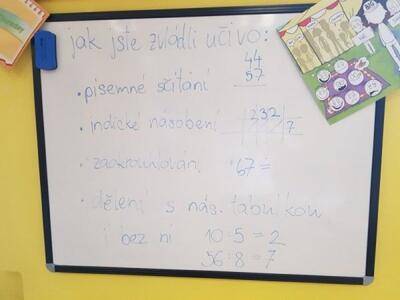 jak jste zvládli učivo:
• písemné sčítání 44
57
• indické násobení 232
7
• zaokrouhlování 67 =
• dělení s nás. tabulkou
i bez ní 10:5=2
56:8=7